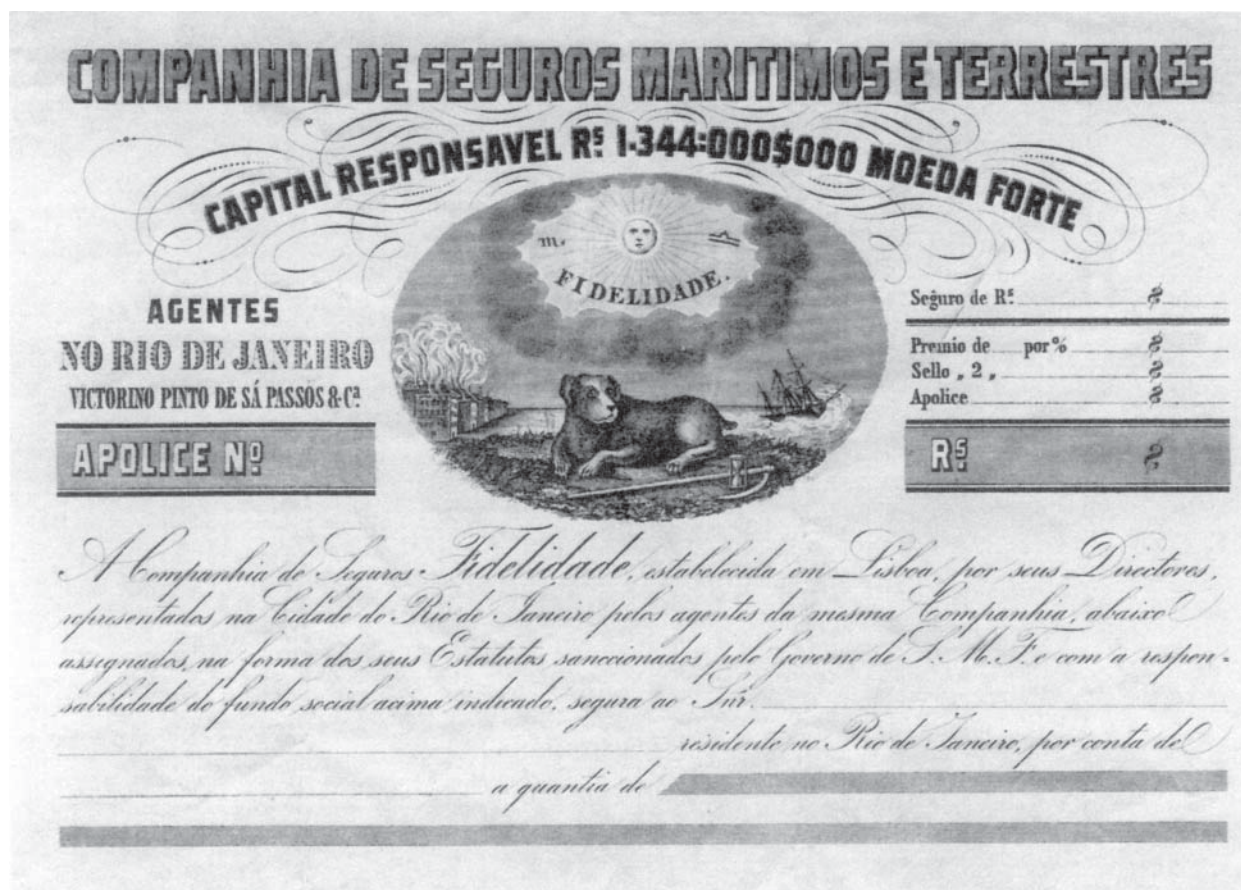 COMPANHIA DE SEGUROS MARITIMOS E TERRESTRES
CAPITAL RESPONSAVEL Rˢ 1.344:000$000 MOEDA FORTE
m.
FIDELIDADE.
AGENTES
NO RIO DE JANEIRO
VICTORINO PINTO DE SÁ PASSOS & Cª
APOLICE Nº
Seguro de Rˢ $
Premio de por % $
Sello „ 2 „ $
Apolice $
Rˢ $
A Companhia de Seguros Fidelidade, estabelecida em Lisboa, por seus Directores,
representados na Cidade do Rio de Janeiro pelos agentes da mesma Companhia, abaixo
assignados, na forma dos seus Estatutos sanccionados pelo Governo de S. M. F. e com a respon-
sabilidade do fundo social acima indicado, segura ao Snr.
residente no Rio de Janeiro, por conta de
a quantia de